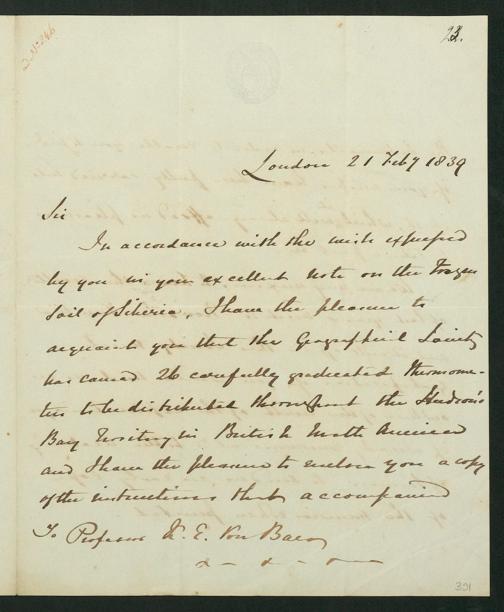 23.
D. N° 246
London 21 Feby 1839
Sir
In accordance with the wish expressed
by you in your excellent note on the Frozen
Soil of Siberia, I have the pleasure to
acquaint you that the Geographical Society
has caused 26 carefully graduated thermome-
ters to be distributed throughout the Hudson's
Bay Territory in British North America
and I have the pleasure to enclose you a copy
of the instructions that accompanied
To Professor K. E. Von Baer
&- &- &-
321